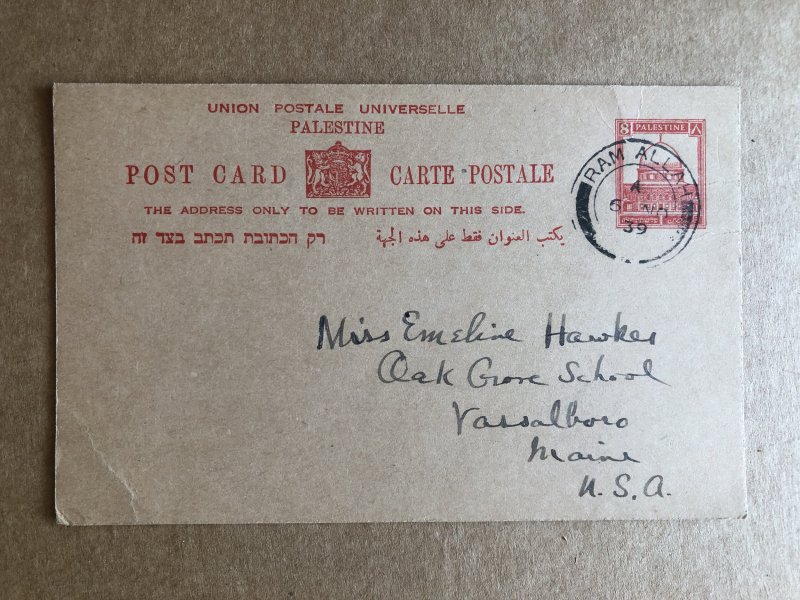 UNION POSTALE UNIVERSELLE
PALESTINE
8 PALESTINE ٨
POST CARD CARTE POSTALE
THE ADDRESS ONLY TO BE WRITTEN ON THIS SIDE.
רק הכתובת תכתב בצד זה يكتب العنوان فقط على هذه الجهة
RAM ALLAH
A
39
Miss Emeline Hawkes
Oak Grove School
Vassalboro
Maine
U.S.A.